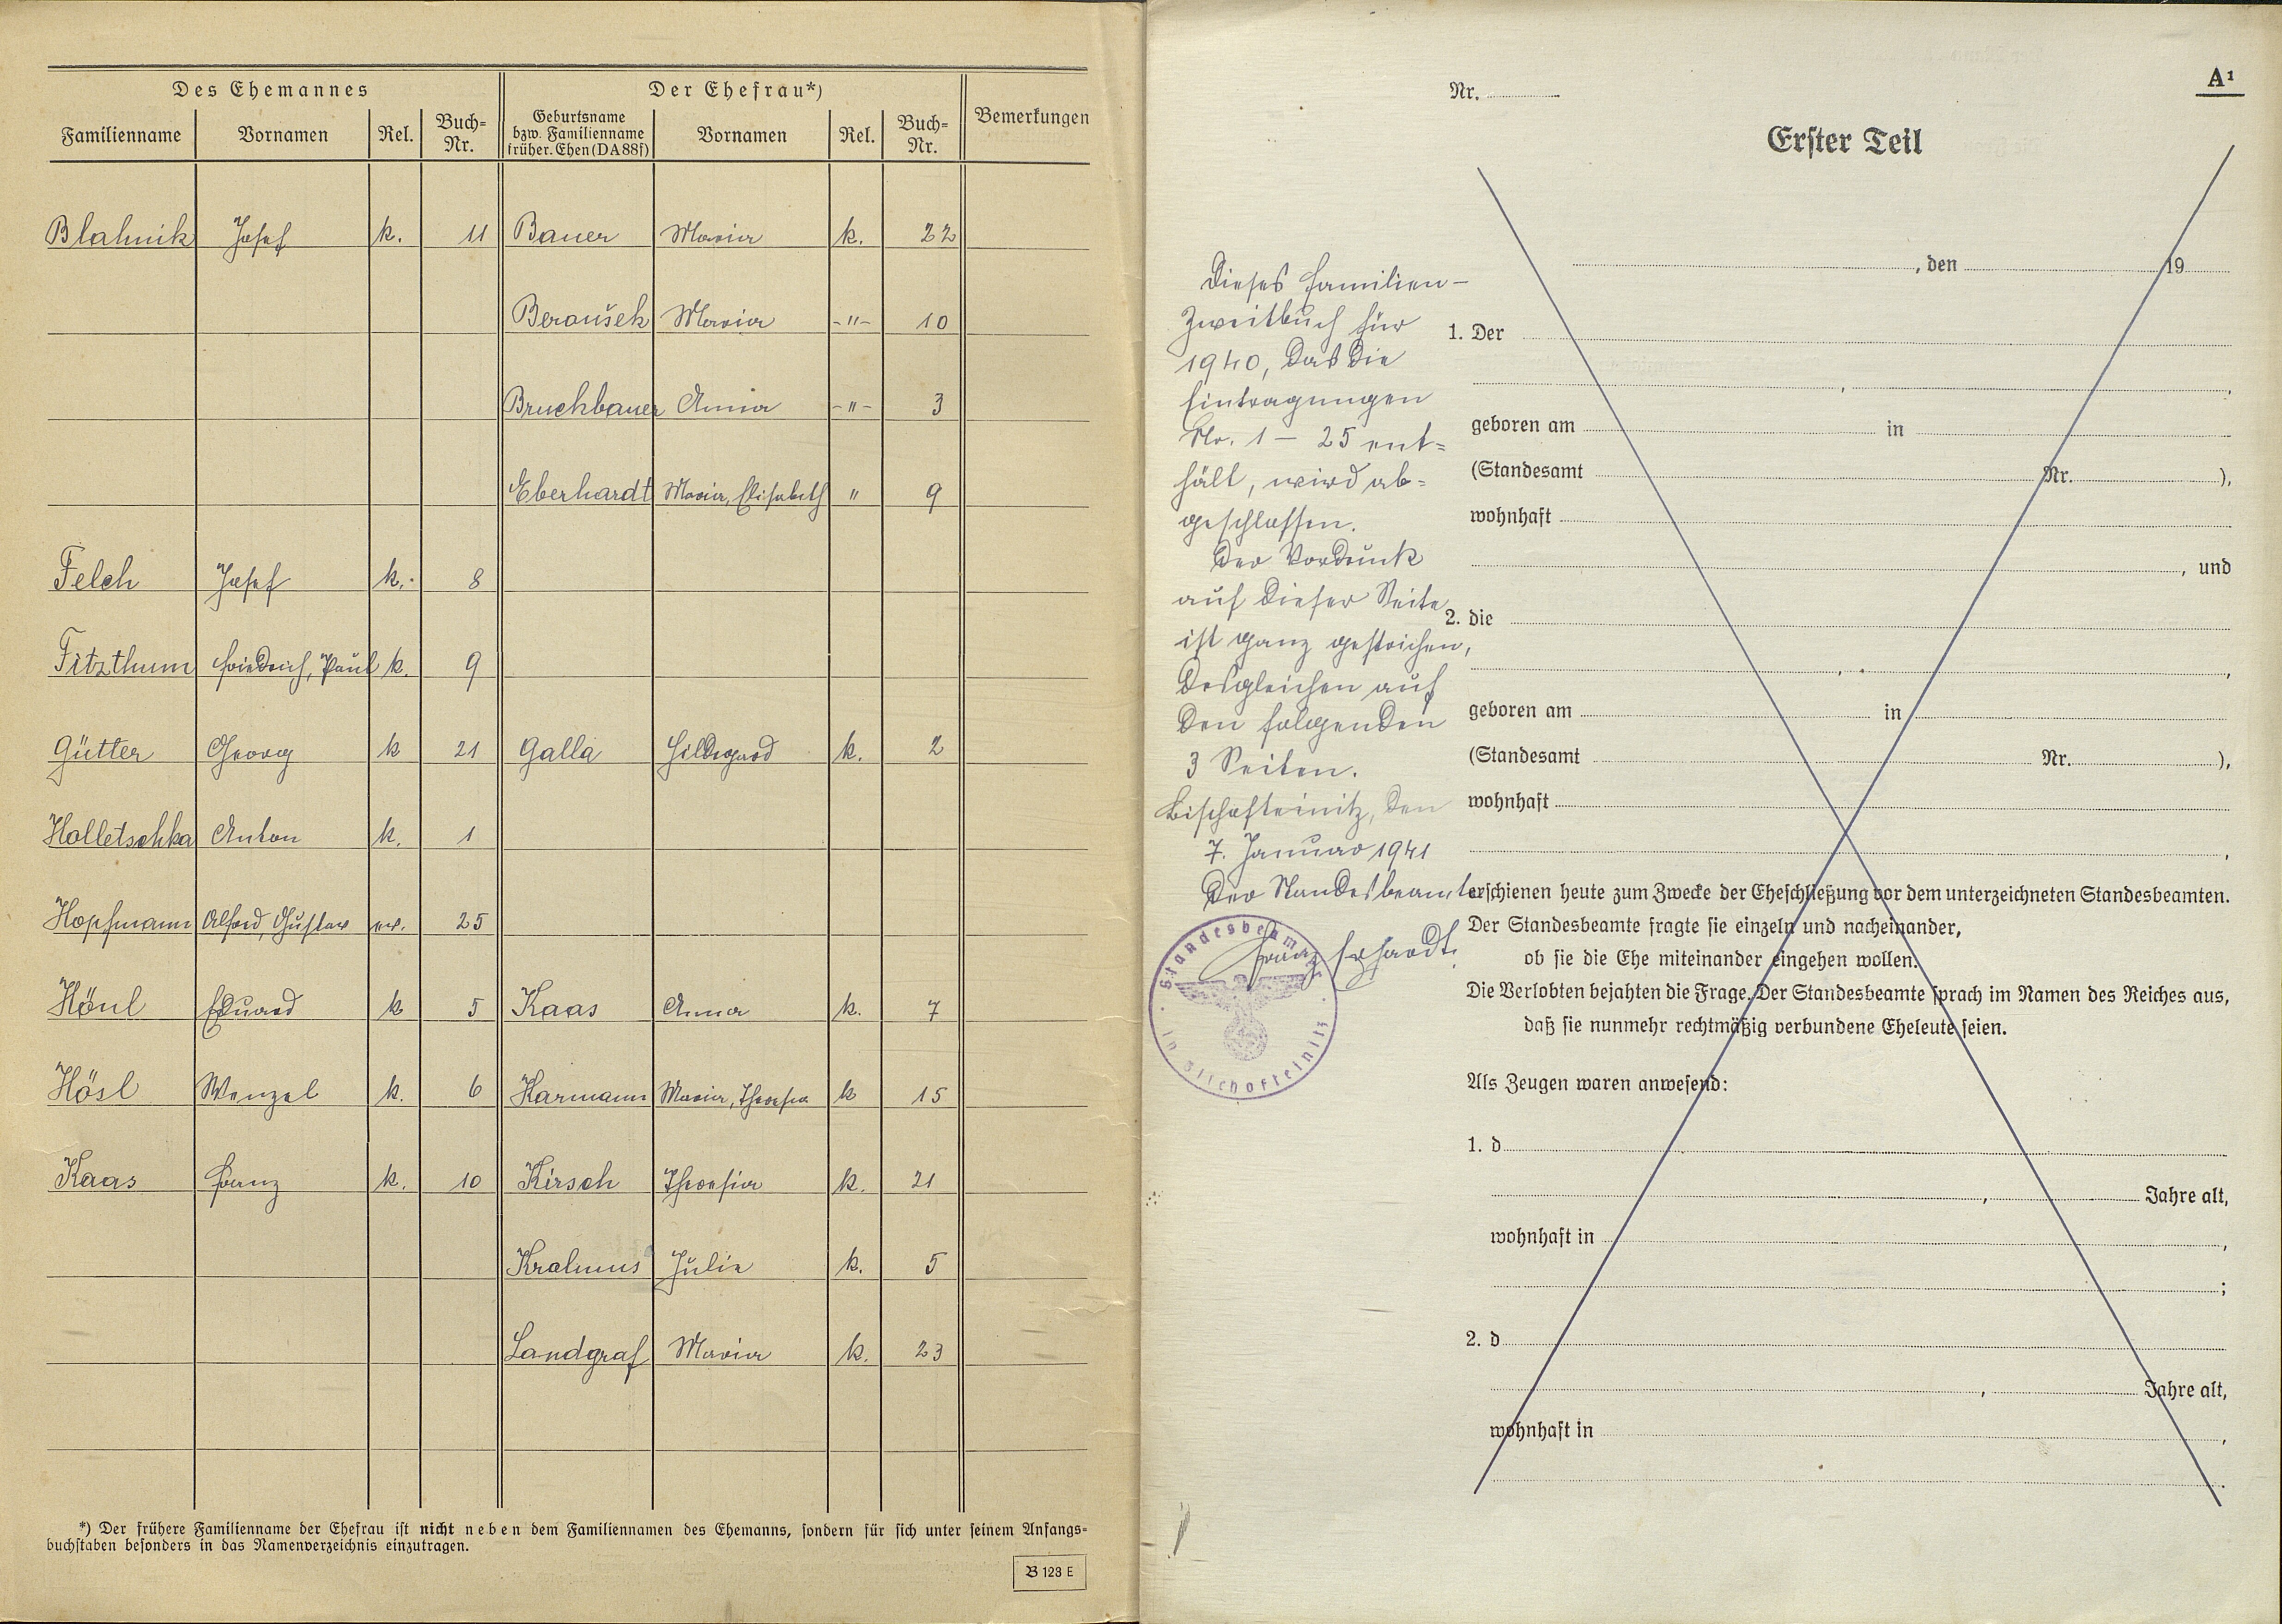 Des Ehemannes Der Ehefrau*) Bemerkungen
Familienname Vornamen Rel. Buch=Nr. Geburtsname bzw. Familienname früher. Ehen (DA 88f) Vornamen Rel. Buch=Nr.
Blahnik Josef k. 11 Bauer Maria k. 22
Beroušek Maria -"- 10
Bruckbauer Anna -"- 3
Eberhardt Maria, Elisabeth " 9
Felch Josef k. 8
Fitzthum Friedrich, Paul k. 9
Gütter Georg k 21 Galla Hildegard k. 2
Holletschka Anton k. 1
Hopfmann Alfred, Gustav ev. 25
Hönl Eduard k 5 Kaas Anna k. 7
Hösl Wenzel k. 6 Karmann Maria, Theresia k 15
Kaas Franz k. 10 Kirsch Theresia k. 21
Krahmus Julie k. 5
Landgraf Maria k. 23
*) Der frühere Familienname der Ehefrau ist nicht neben dem Familiennamen des Ehemanns, sondern für sich unter seinem Anfangs=
buchstaben besonders in das Namenverzeichnis einzutragen.
B 123 E
A¹
Nr.
Erster Teil
Dieses Familien-
Zweitbuch für
1940, das die
Eintragungen
Nr. 1 - 25 ent=
hält, wird ab=
geschlossen.
Der Vordruck
auf dieser Seite
ist ganz gestrichen,
desgleichen auf
den folgenden
3 Seiten.
Bischofteinitz, den
7. Januar 1941
Der Standesbeamte
Franz Erhardt.
Standesbeamter in Bischofteinitz
, den 19
1. Der
,
geboren am in
(Standesamt Nr. ),
wohnhaft
, und
2. die
,
geboren am in
(Standesamt Nr. ),
wohnhaft
,
erschienen heute zum Zwecke der Eheschließung vor dem unterzeichneten Standesbeamten.
Der Standesbeamte fragte sie einzeln und nacheinander,
ob sie die Ehe miteinander eingehen wollen.
Die Verlobten bejahten die Frage. Der Standesbeamte sprach im Namen des Reiches aus,
daß sie nunmehr rechtmäßig verbundene Eheleute seien.
Als Zeugen waren anwesend:
1. d
, Jahre alt,
wohnhaft in ,
;
2. d
, Jahre alt,
wohnhaft in ,
.